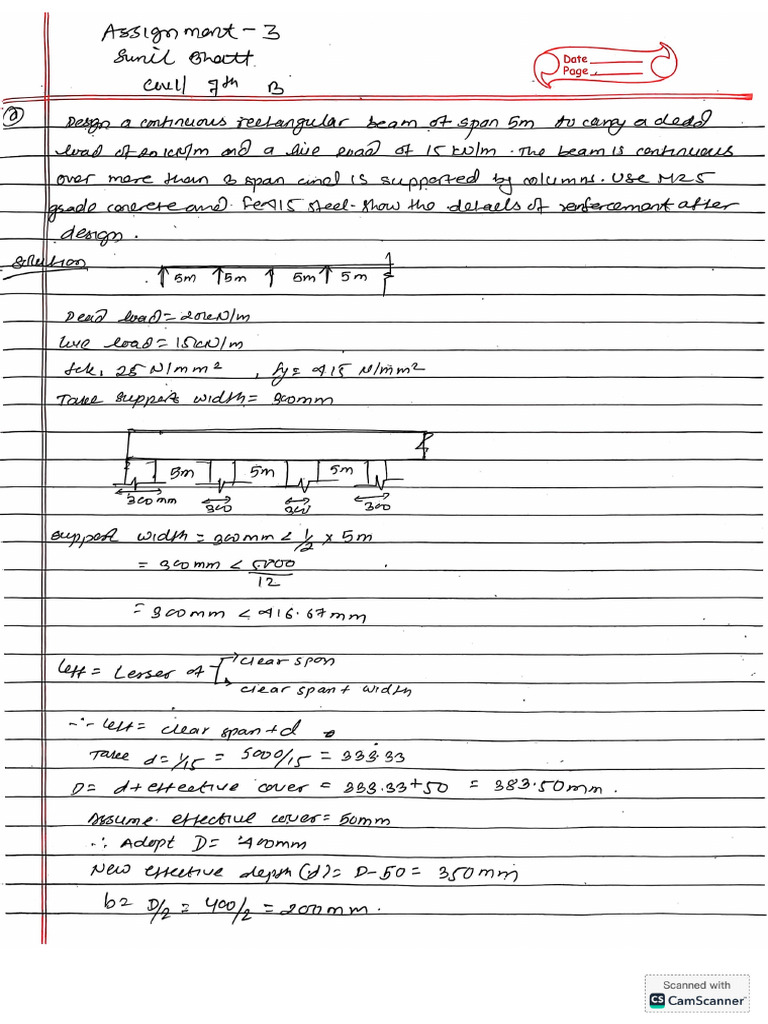 Assignment - 3
Sunil Bhatt
Civil 7th B
Date
Page
Design a continuous rectangular beam of span 5m to carry a dead
load of 20 kN/m and a live load of 15 kN/m. The beam is continuous
over more than 3 span and is supported by columns. Use M25
grade concrete and Fe415 steel. Show the details of reinforcement after
design.
Solution
5m 5m 5m 5m
Dead load = 20kN/m
live load = 15kN/m
fck, 25 N/mm2 , fy = 415 N/mm2
Take support width = 300mm
5m 5m 5m
300 mm 300 300 300
support width = 300mm < 1/2 x 5m
= 300mm < 5000/12
= 300mm < 416.67mm
leff = Lesser of clear span
clear span + width
∴ leff = clear span + d
Take d = 1/15 = 5000/15 = 333.33
D = d + effective cover = 333.33 + 50 = 383.50mm.
Assume effective cover = 50mm
∴ Adopt D = 400mm
New effective depth (d) = D - 50 = 350mm
b = D/2 = 400/2 = 200mm.
Scanned with
CS CamScanner